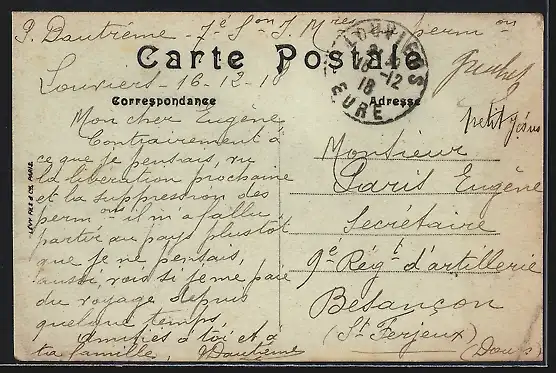 P. Dautrême - 7e Son I. Mres perm on
Carte Postale
Louviers - 16 - 12 - 18
LOUVIERS
16 -12
18
EURE
Correspondance
Adresse
Mon cher Eugène
Contrairement à
ce que je pensais, vu
la libération prochaine
et la suppression des
perm ons il m'a fallu
partir au pays plustôt
que je ne pensais,
aussi vois si je me paie
du voyage depuis
quelque temps,
amitiés à toi et à
ta famille, Dautrême
LEVY FILS & Cie, PARIS
Petit Jésus
Monsieur
Paris Eugène
Secrétaire
9e Régt d'artillerie
Besançon
(St Ferjeux)
(Doubs)